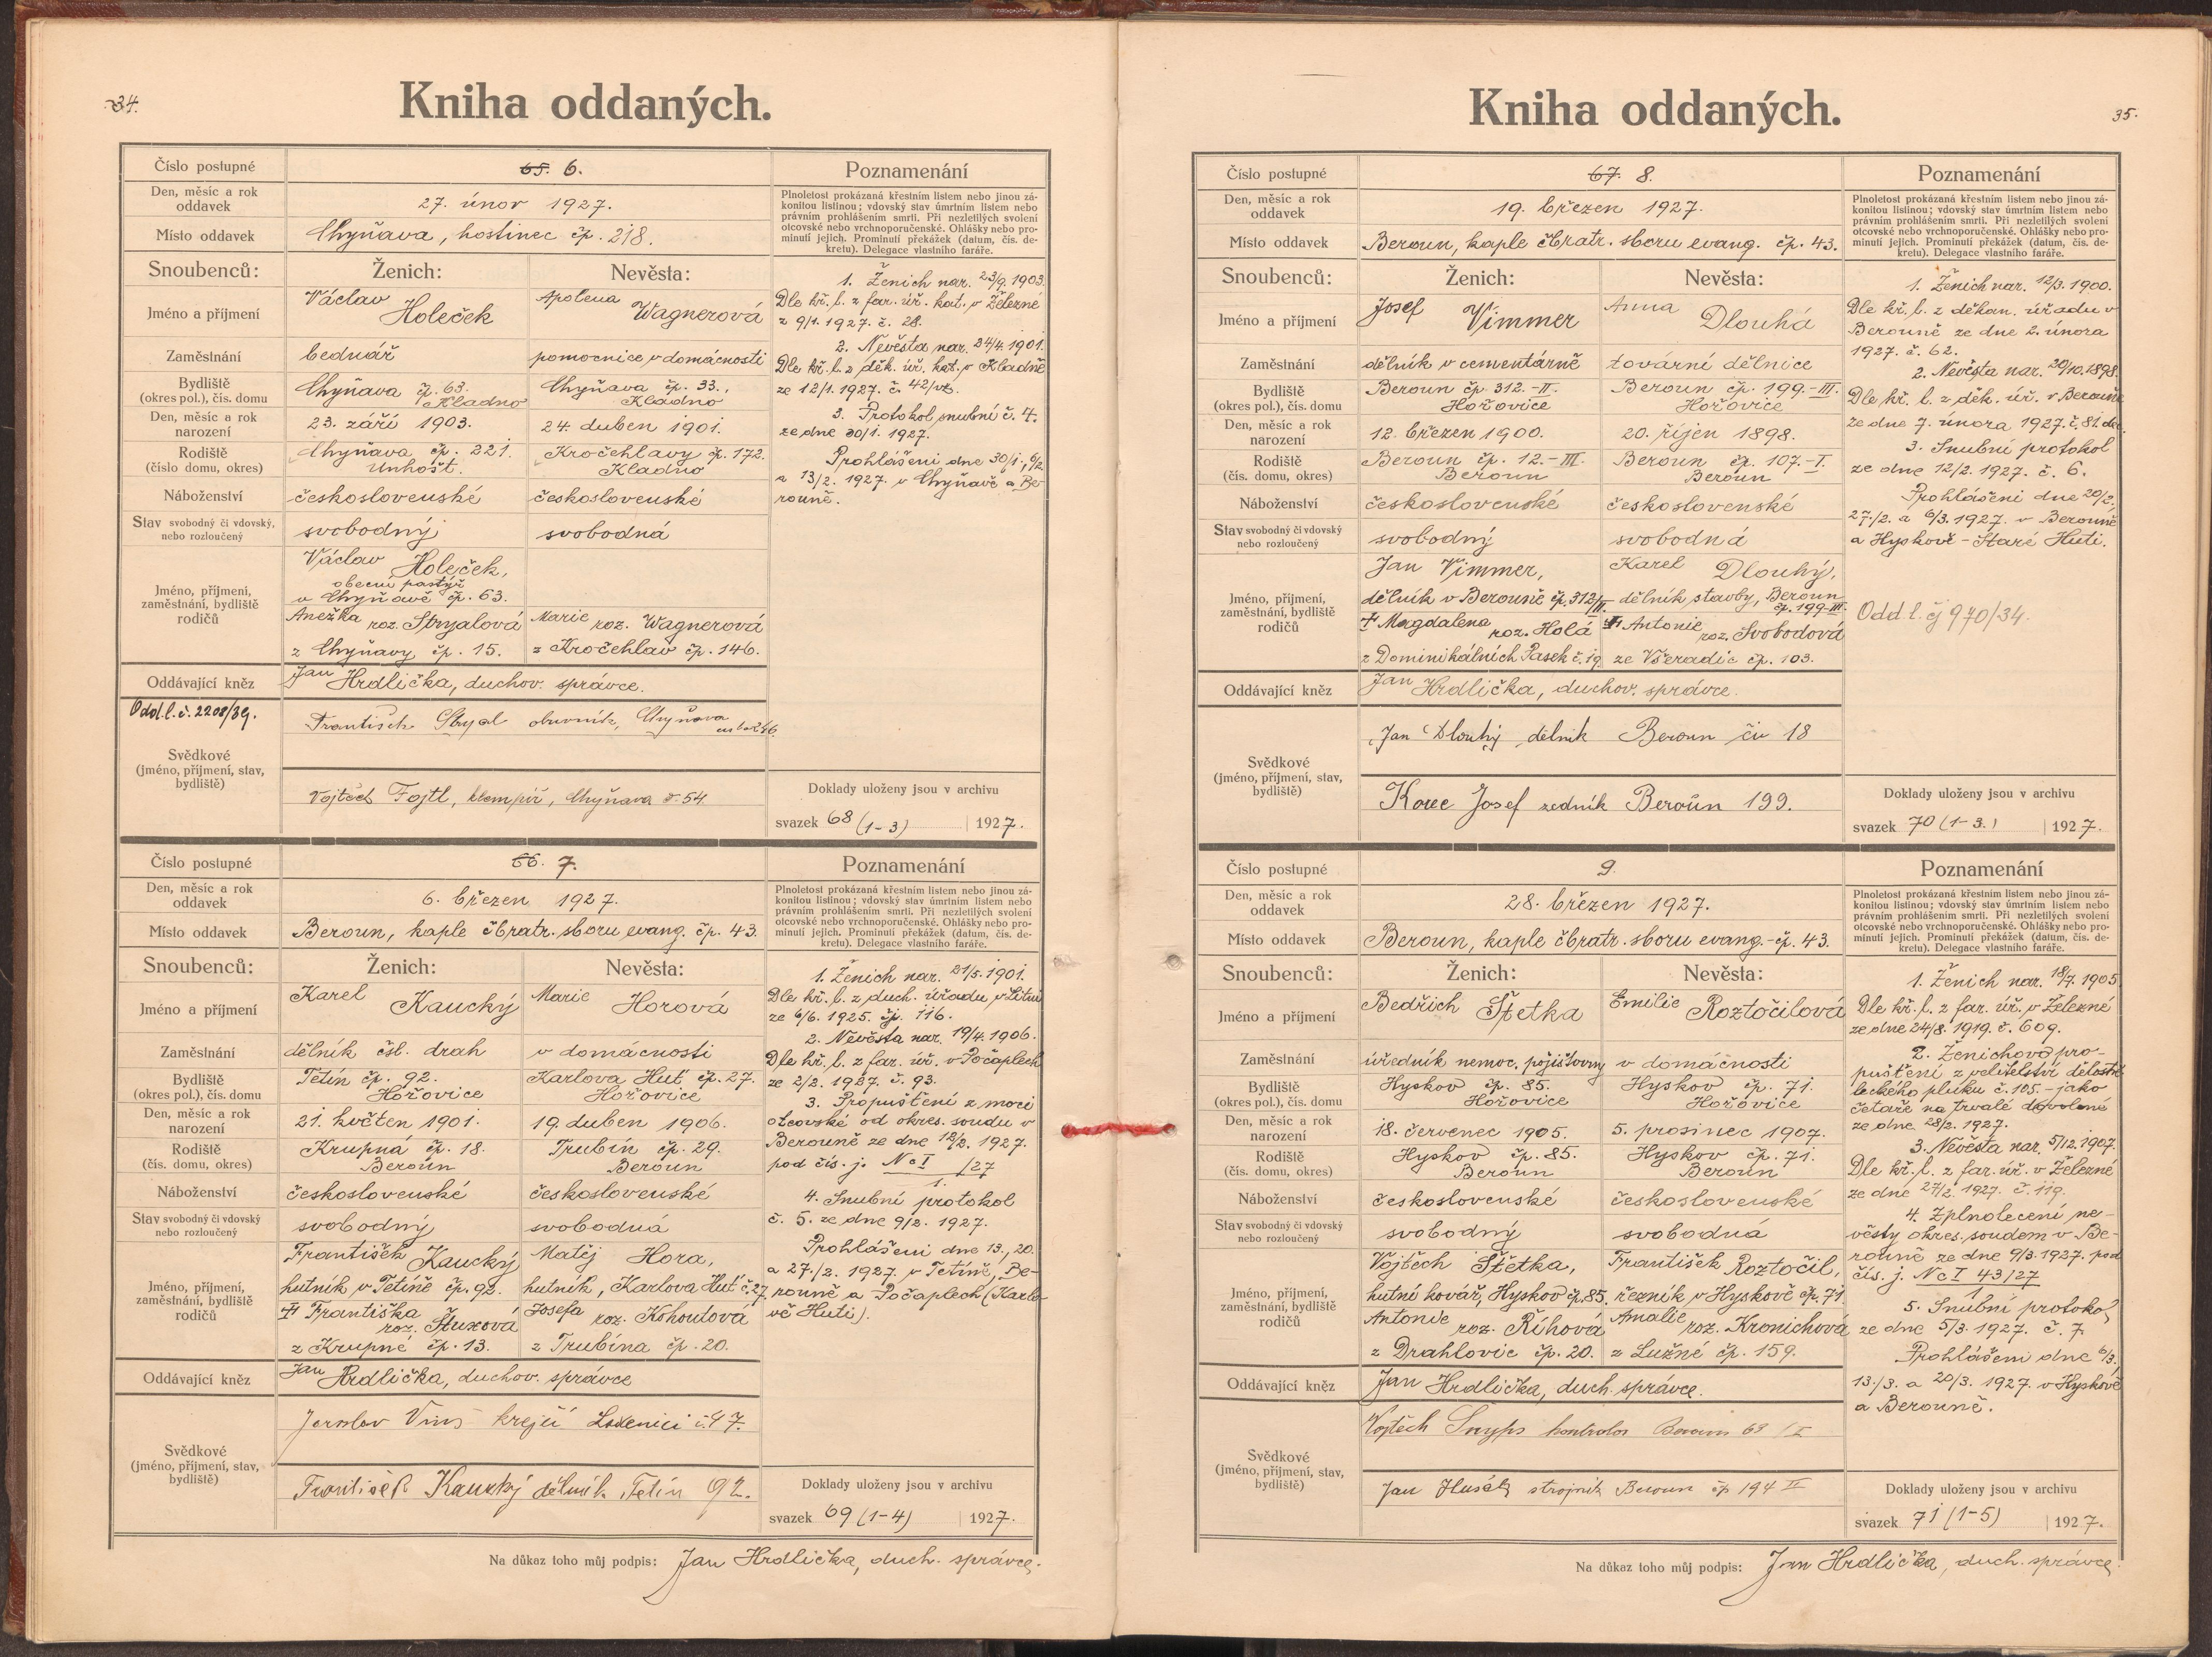 34.
Kniha oddaných.
Číslo postupné
65. 6.
Poznamenání
Den, měsíc a rok
oddavek
27. únor 1927.
Plnoletost prokázaná křestním listem nebo jinou zá-
konitou listinou; vdovský stav úmrtním listem nebo
právním prohlášením smrti. Při nezletilých svolení
otcovské nebo vrchnoporučenské. Ohlášky nebo pro-
minutí jejich. Prominutí překážek (datum, čís. de-
kretu). Delegace vlastního faráře.
Místo oddavek
Chyňava, hostinec čp. 218.
Snoubenců:
Ženich:
Nevěsta:
Jméno a příjmení
Václav Holeček
Apolena Wagnerová
Zaměstnání
bednář
pomocnice v domácnosti
Bydliště
(okres pol.), čís. domu
Chyňava čp. 63.
Kladno
Chyňava čp. 33.,
Kladno
Den, měsíc a rok
narození
23. září 1903.
24. duben 1901.
Rodiště
(číslo domu, okres)
Chyňava čp. 221.
Unhošť.
Kročehlavy čp. 172.
Kladno
Náboženství
československé
československé
Stav svobodný či vdovský,
nebo rozloučený
svobodný
svobodná
Jméno, příjmení,
zaměstnání, bydliště
rodičů
Václav Holeček,
obecní pastýř
v Chyňavě čp. 63.
Anežka roz. Stryalová
z Chyňavy čp. 15.
Marie roz. Wagnerová
z Kročehlav čp. 146.
Oddávající kněz
Jan Hrdlička, duchov. správce.
Odd. l. č. 2208/39.
Svědkové
(jméno, příjmení, stav,
bydliště)
František Stryal obuvník, Chyňava
Vojtěch Fojtl, klempíř, Chyňava č. 54.
1. Ženich nar. 23/9. 1903.
Dle kř. l. z far. úř. kat. v Železné
z 9/1. 1927. č. 28.
2. Nevěsta nar. 24/4. 1901.
Dle kř. l. z děk. úř. kat. v Kladně
ze 12/1. 1927. č. 42/
3. Protokol snubní č. 4.
ze dne 30/1. 1927.
Prohlášení dne 30/1., 6/2.
a 13/2. 1927. v Chyňavě a Be-
rouně.
Doklady uloženy jsou v archivu
svazek 68 (1-3) 1927.
Číslo postupné
66. 7.
Poznamenání
Den, měsíc a rok
oddavek
6. březen 1927.
Plnoletost prokázaná křestním listem nebo jinou zá-
konitou listinou; vdovský stav úmrtním listem nebo
právním prohlášením smrti. Při nezletilých svolení
otcovské nebo vrchnoporučenské. Ohlášky nebo pro-
minutí jejich. Prominutí překážek (datum, čís. de-
kretu). Delegace vlastního faráře.
Místo oddavek
Beroun, kaple čbratr. sboru evang. čp. 43.
Snoubenců:
Ženich:
Nevěsta:
Jméno a příjmení
Karel Kaucký
Marie Horová
Zaměstnání
dělník čsl. drah
v domácnosti
Bydliště
(okres pol.), čís. domu
Tetín čp. 92.
Hořovice
Karlova Huť čp. 27.
Hořovice
Den, měsíc a rok
narození
21. květen 1901.
19. duben 1906.
Rodiště
(čís. domu, okres)
Krupná čp. 18.
Beroun
Trubín čp. 29.
Beroun
Náboženství
československé
československé
Stav svobodný či vdovský
nebo rozloučený
svobodný
svobodná
Jméno, příjmení,
zaměstnání, bydliště
rodičů
František Kaucký
hutník v Tetíně čp. 92.
† Františka
roz. Štuxová
z Krupné čp. 13.
Matěj Hora,
hutník, Karlova Huť č. 27.
Josefa roz. Kohoutová
z Trubína čp. 20.
Oddávající kněz
Jan Hrdlička, duchov. správce
Svědkové
(jméno, příjmení, stav,
bydliště)
krejčí Loděnici č. 47.
František Kaucký dělník Tetín 92.
1. Ženich nar. 21/5. 1901.
Dle kř. l. z duch. úřadu v Litni
ze 6/6. 1925. čp. 116.
2. Nevěsta nar. 19/4. 1906.
Dle kř. l. z far. úř. v Počaplech
ze 2/2. 1927. č. 93.
3. Propuštění z moci
otcovské od okres. soudu v
Berouně ze dne 12/2. 1927.
pod čís. j. Nc I /27
1.
4. Snubní protokol
č. 5. ze dne 9/2. 1927.
Prohlášení dne 13., 20.
a 27./2. 1927. v Tetíně, Be-
rouně a Počaplech (Karlo-
vě Huti).
Doklady uloženy jsou v archivu
svazek 69 (1-4) 1927.
Na důkaz toho můj podpis: Jan Hrdlička, duch. správce.
35.
Kniha oddaných.
Číslo postupné
67. 8.
Poznamenání
Den, měsíc a rok
oddavek
19. březen 1927.
Plnoletost prokázaná křestním listem nebo jinou zá-
konitou listinou; vdovský stav úmrtním listem nebo
právním prohlášením smrti. Při nezletilých svolení
otcovské nebo vrchnoporučenské. Ohlášky nebo pro-
minutí jejich. Prominutí překážek (datum, čís. de-
kretu). Delegace vlastního faráře.
Místo oddavek
Beroun, kaple čbratr. sboru evang. čp. 43.
Snoubenců:
Ženich:
Nevěsta:
Jméno a příjmení
Josef Vimmer
Anna Dlouhá
Zaměstnání
dělník v cementárně
tovární dělnice
Bydliště
(okres pol.), čís. domu
Beroun čp. 312.-II.
Hořovice
Beroun čp. 199.-III.
Hořovice
Den, měsíc a rok
narození
12. březen 1900.
20. říjen 1898.
Rodiště
(čís. domu, okres)
Beroun čp. 12.-III.
Beroun
Beroun čp. 107.-I.
Beroun
Náboženství
československé
československé
Stav svobodný či vdovský
nebo rozloučený
svobodný
svobodná
Jméno, příjmení,
zaměstnání, bydliště
rodičů
Jan Vimmer,
dělník v Berouně čp. 312/II.
† Magdalena
roz. Holá
z Dominikálních Pasek č. 19.
Karel Dlouhý,
dělník stavby, Beroun
čp. 199-III.
† Antonie
roz. Svobodová
ze Všeradic čp. 103.
Oddávající kněz
Jan Hrdlička, duchov. správce.
Svědkové
(jméno, příjmení, stav,
bydliště)
Jan Dlouhý dělník Beroun čp 18
Korec Josef zedník Beroun 199.
1. Ženich nar. 12/3. 1900.
Dle kř. l. z děkan. úřadu v
Berouně ze dne 2. února
1927. č. 62.
2. Nevěsta nar. 20/10. 1898.
Dle kř. l. z děk. úř. v Berouně
ze dne 7. února 1927. č. 81.
3. Snubní protokol
ze dne 12/2. 1927. č. 6.
Prohlášení dne 20/2.,
27./2. a 6/3. 1927. v Berouně
a Hyskově - Staré Huti.
Odd. l. čj 970/34.
Doklady uloženy jsou v archivu
svazek 70 (1-3.) 1927.
Číslo postupné
9.
Poznamenání
Den, měsíc a rok
oddavek
28. březen 1927.
Plnoletost prokázaná křestním listem nebo jinou zá-
konitou listinou; vdovský stav úmrtním listem nebo
právním prohlášením smrti. Při nezletilých svolení
otcovské nebo vrchnoporučenské. Ohlášky nebo pro-
minutí jejich. Prominutí překážek (datum, čís. de-
kretu). Delegace vlastního faráře.
Místo oddavek
Beroun, kaple čbratr. sboru evang. - čp. 43.
Snoubenců:
Ženich:
Nevěsta:
Jméno a příjmení
Bedřich Štětka
Emilie Roztočilová
Zaměstnání
úředník nemoc. pojišťovny
v domácnosti
Bydliště
(okres pol.), čís. domu
Hyskov čp. 85.
Hořovice
Hyskov čp. 71.
Hořovice
Den, měsíc a rok
narození
18. červenec 1905.
5. prosinec 1907.
Rodiště
(čís. domu, okres)
Hyskov čp. 85.
Beroun
Hyskov čp. 71.
Beroun
Náboženství
československé
československé
Stav svobodný či vdovský
nebo rozloučený
svobodný
svobodná
Jméno, příjmení,
zaměstnání, bydliště
rodičů
Vojtěch Štětka,
hutní kovář, Hyskov čp. 85.
Antonie
roz. Říhová
z Drahlovic čp. 20.
František Roztočil,
řezník v Hyskově čp. 71.
Amalie
roz. Kronichová
z Lužné čp. 159.
Oddávající kněz
Jan Hrdlička, duch. správce.
Svědkové
(jméno, příjmení, stav,
bydliště)
Vojtěch Beroun 63 / I
Jan Husák strojník Beroun čp 194 II
1. Ženich nar. 18/7. 1905.
Dle kř. l. z far. úř. v Železné
ze dne 24/8. 1919. č. 609.
2. Ženichovo pro-
puštění z velitelství dělostř-
leckého pluku č. 105. - jako
četaře na trvalé dovolené
ze dne 28/2. 1927.
3. Nevěsta nar. 5/12. 1907.
Dle kř. l. z far. úř. v Železné
ze dne 27/2. 1927. č. 119.
4. Zplnoletění ne-
věsty okres. soudem v Be-
rouně ze dne 9/3. 1927. pod
čís. j. Nc I 43/27
1
5. Snubní protokol
ze dne 5/3. 1927. č. 7.
Prohlášení dne 6/3.
13./3. a 20/3. 1927. v Hyskově
a Berouně.
Doklady uloženy jsou v archivu
svazek 71 (1-5) 1927.
Na důkaz toho můj podpis: Jan Hrdlička, duch. správce.